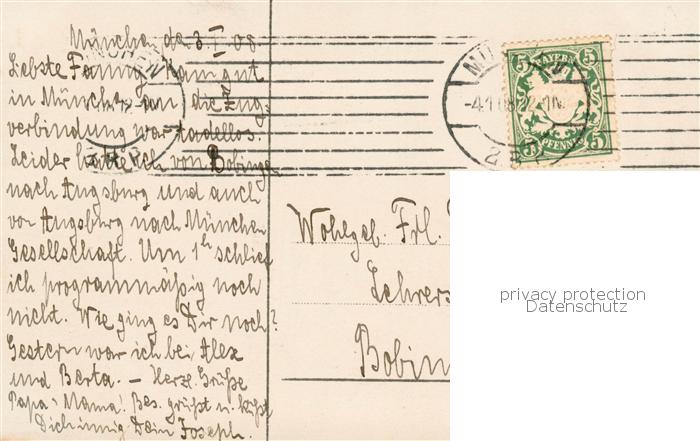 München den 3. I. 08
Liebste Fanny! Kam gut
in München an die Zug-
verbindung war tadellos.
Leider hatte ich von Bobingen
nach Augsburg und auch
von Augsburg nach München
Gesellschaft. Um 1h schlief
ich programmäßig noch
nicht. Wie ging es Dir noch?
Gestern war ich bei Alex
und Berta. — Herzl. Grüße
Papa & Mama! Bes. grüßt u. küßt
Dich innig Dein Joseph.
BAYERN
5 5
5 5
PFENNIG
Wohlgeb. Frl.
Lehrers
Bobin
privacy protection
Datenschutz